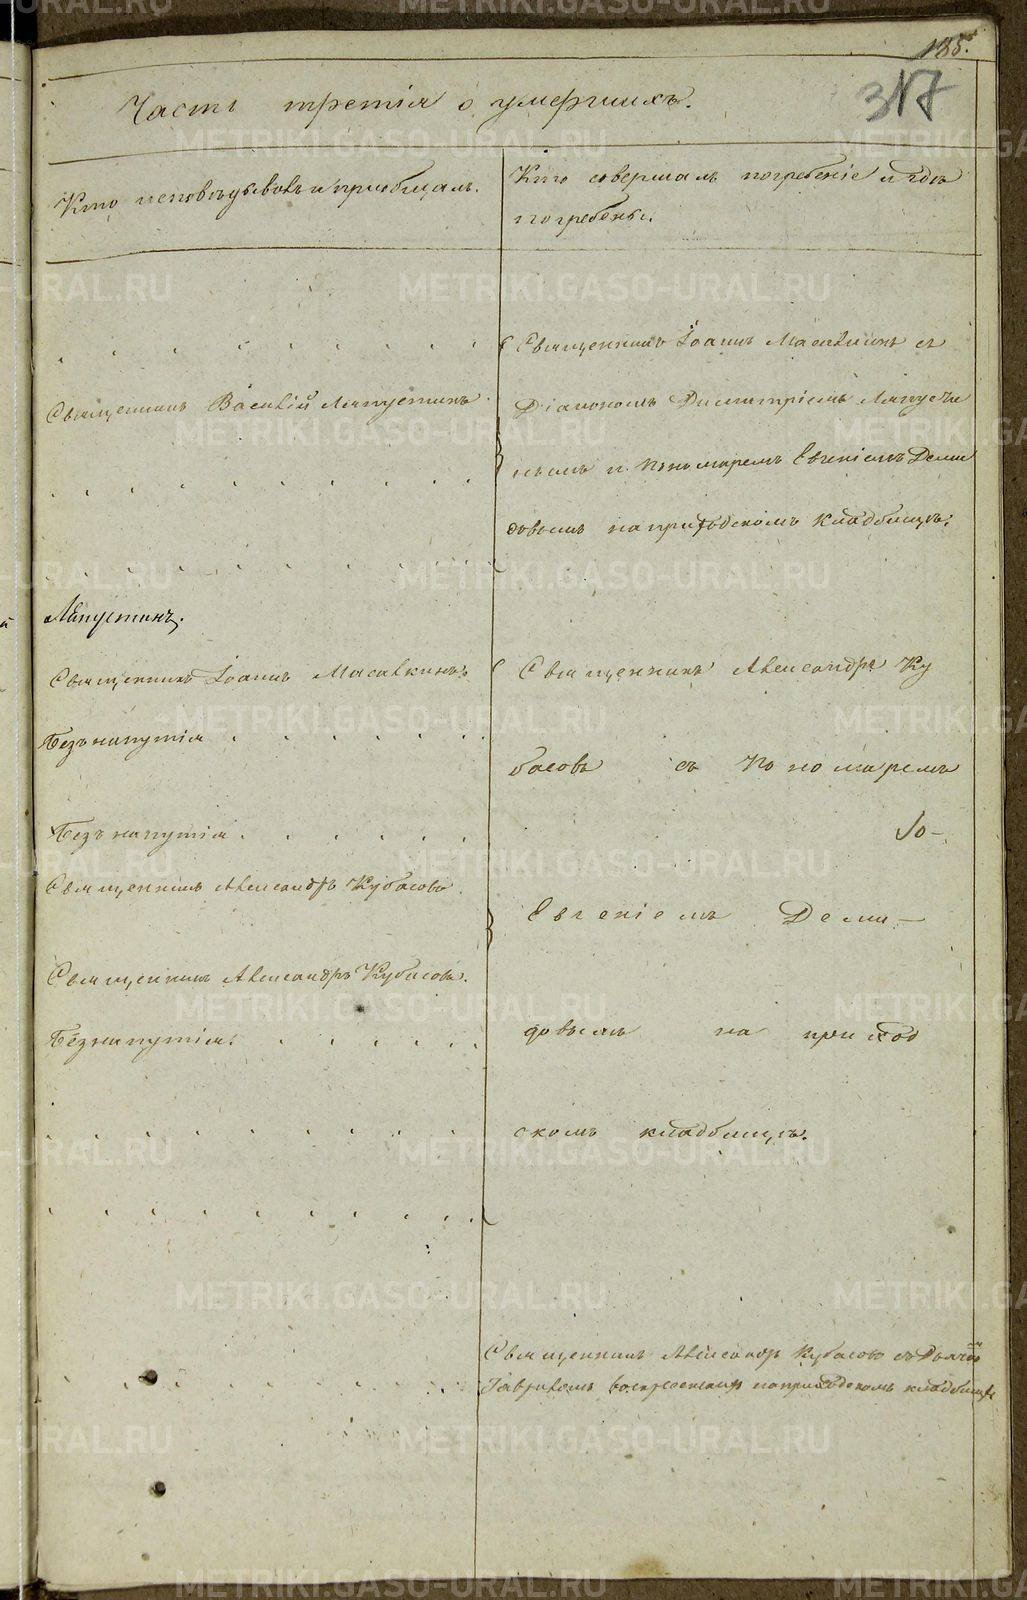 185.
317
Часть третія о умершихъ.
Кто исповѣдывалъ и приобщалъ.
Кто совершалъ погребеніе и гдѣ
погребены.
Священникъ Василій Лапустинъ
Лапустинъ.
Священникъ Іоаннъ Масалкинъ.
Безъ напутія
Безъ напутія
Священникъ Александръ Кубасовъ
Священникъ Александръ Кубасовъ.
Безъ напутія.
Священникъ Іоаннъ Масалкинъ съ
Діакономъ Димитріемъ Лапусти
нымъ и Пономаремъ Евгеніемъ Деми
довымъ на приходскомъ кладбищѣ.
Священникъ Александръ Ку
басовъ съ Пономаремъ
Евгеніемъ Деми-
довымъ на приход
скомъ кладбищѣ.
Священникъ Александръ Кубасовъ съ
на приходскомъ кладбищѣ
METRIKI.GASO-URAL.RU